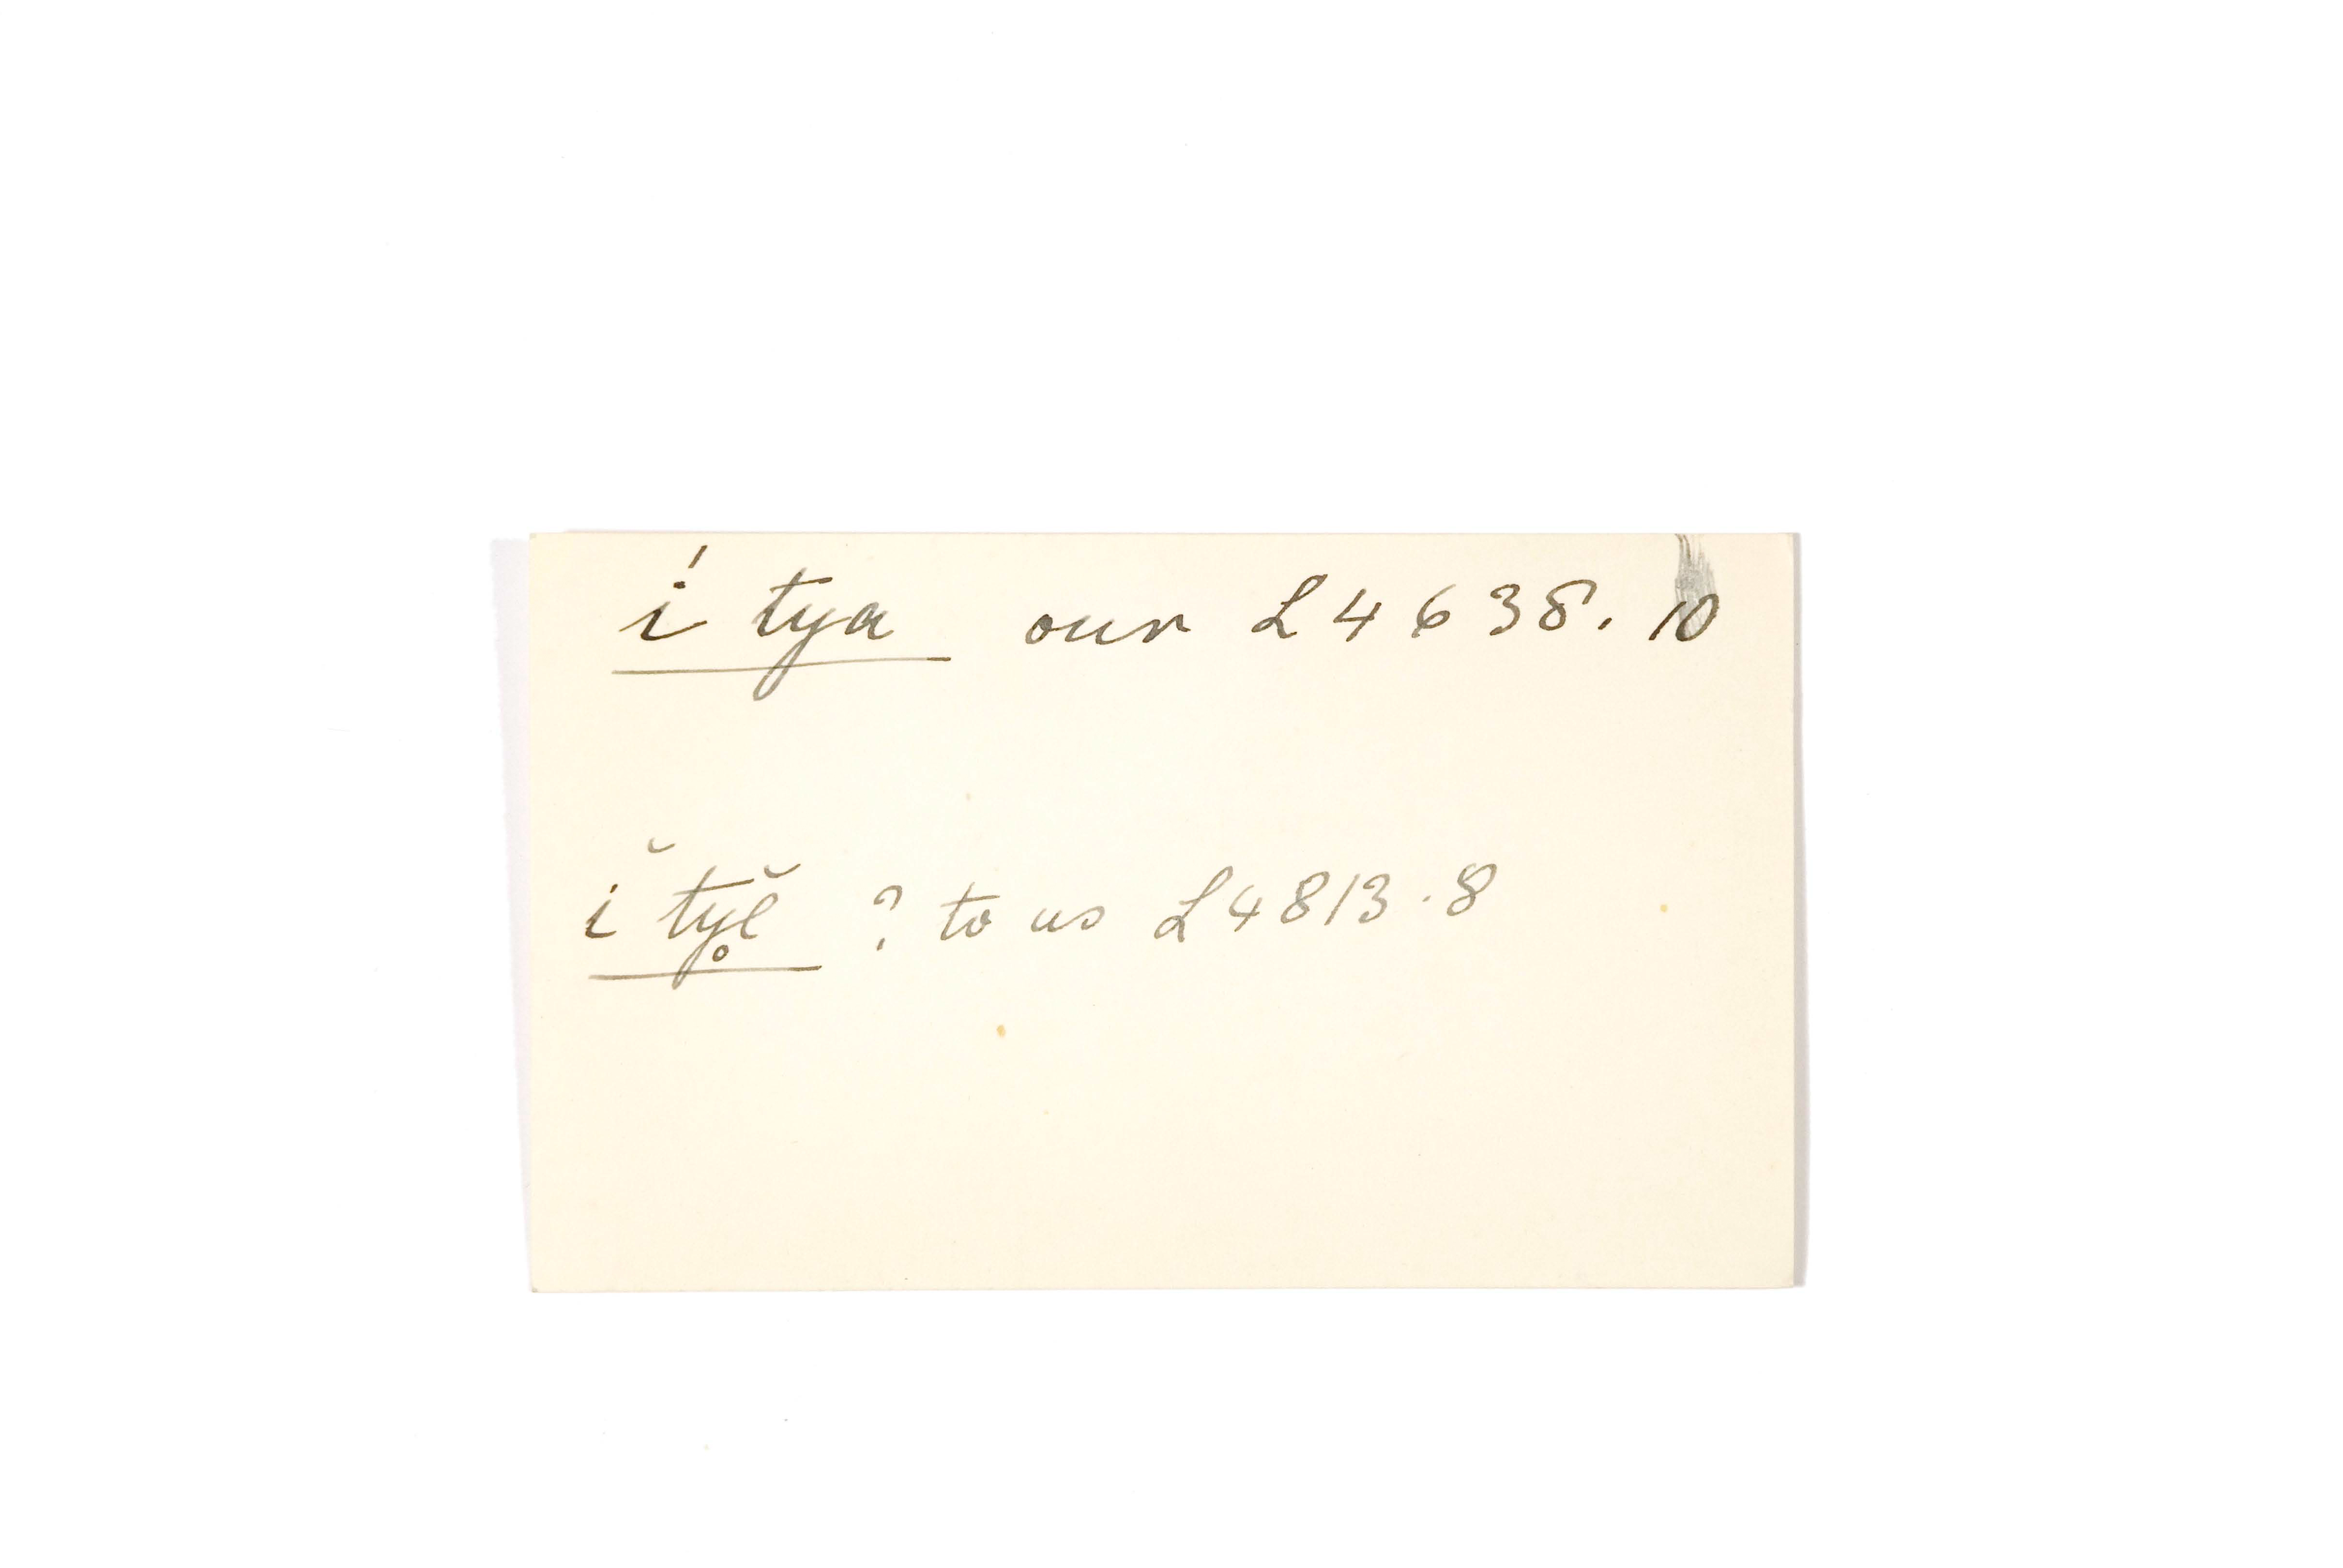 í tya our L4638.10
ĭ ty̥ĕ ? to us L4813.8